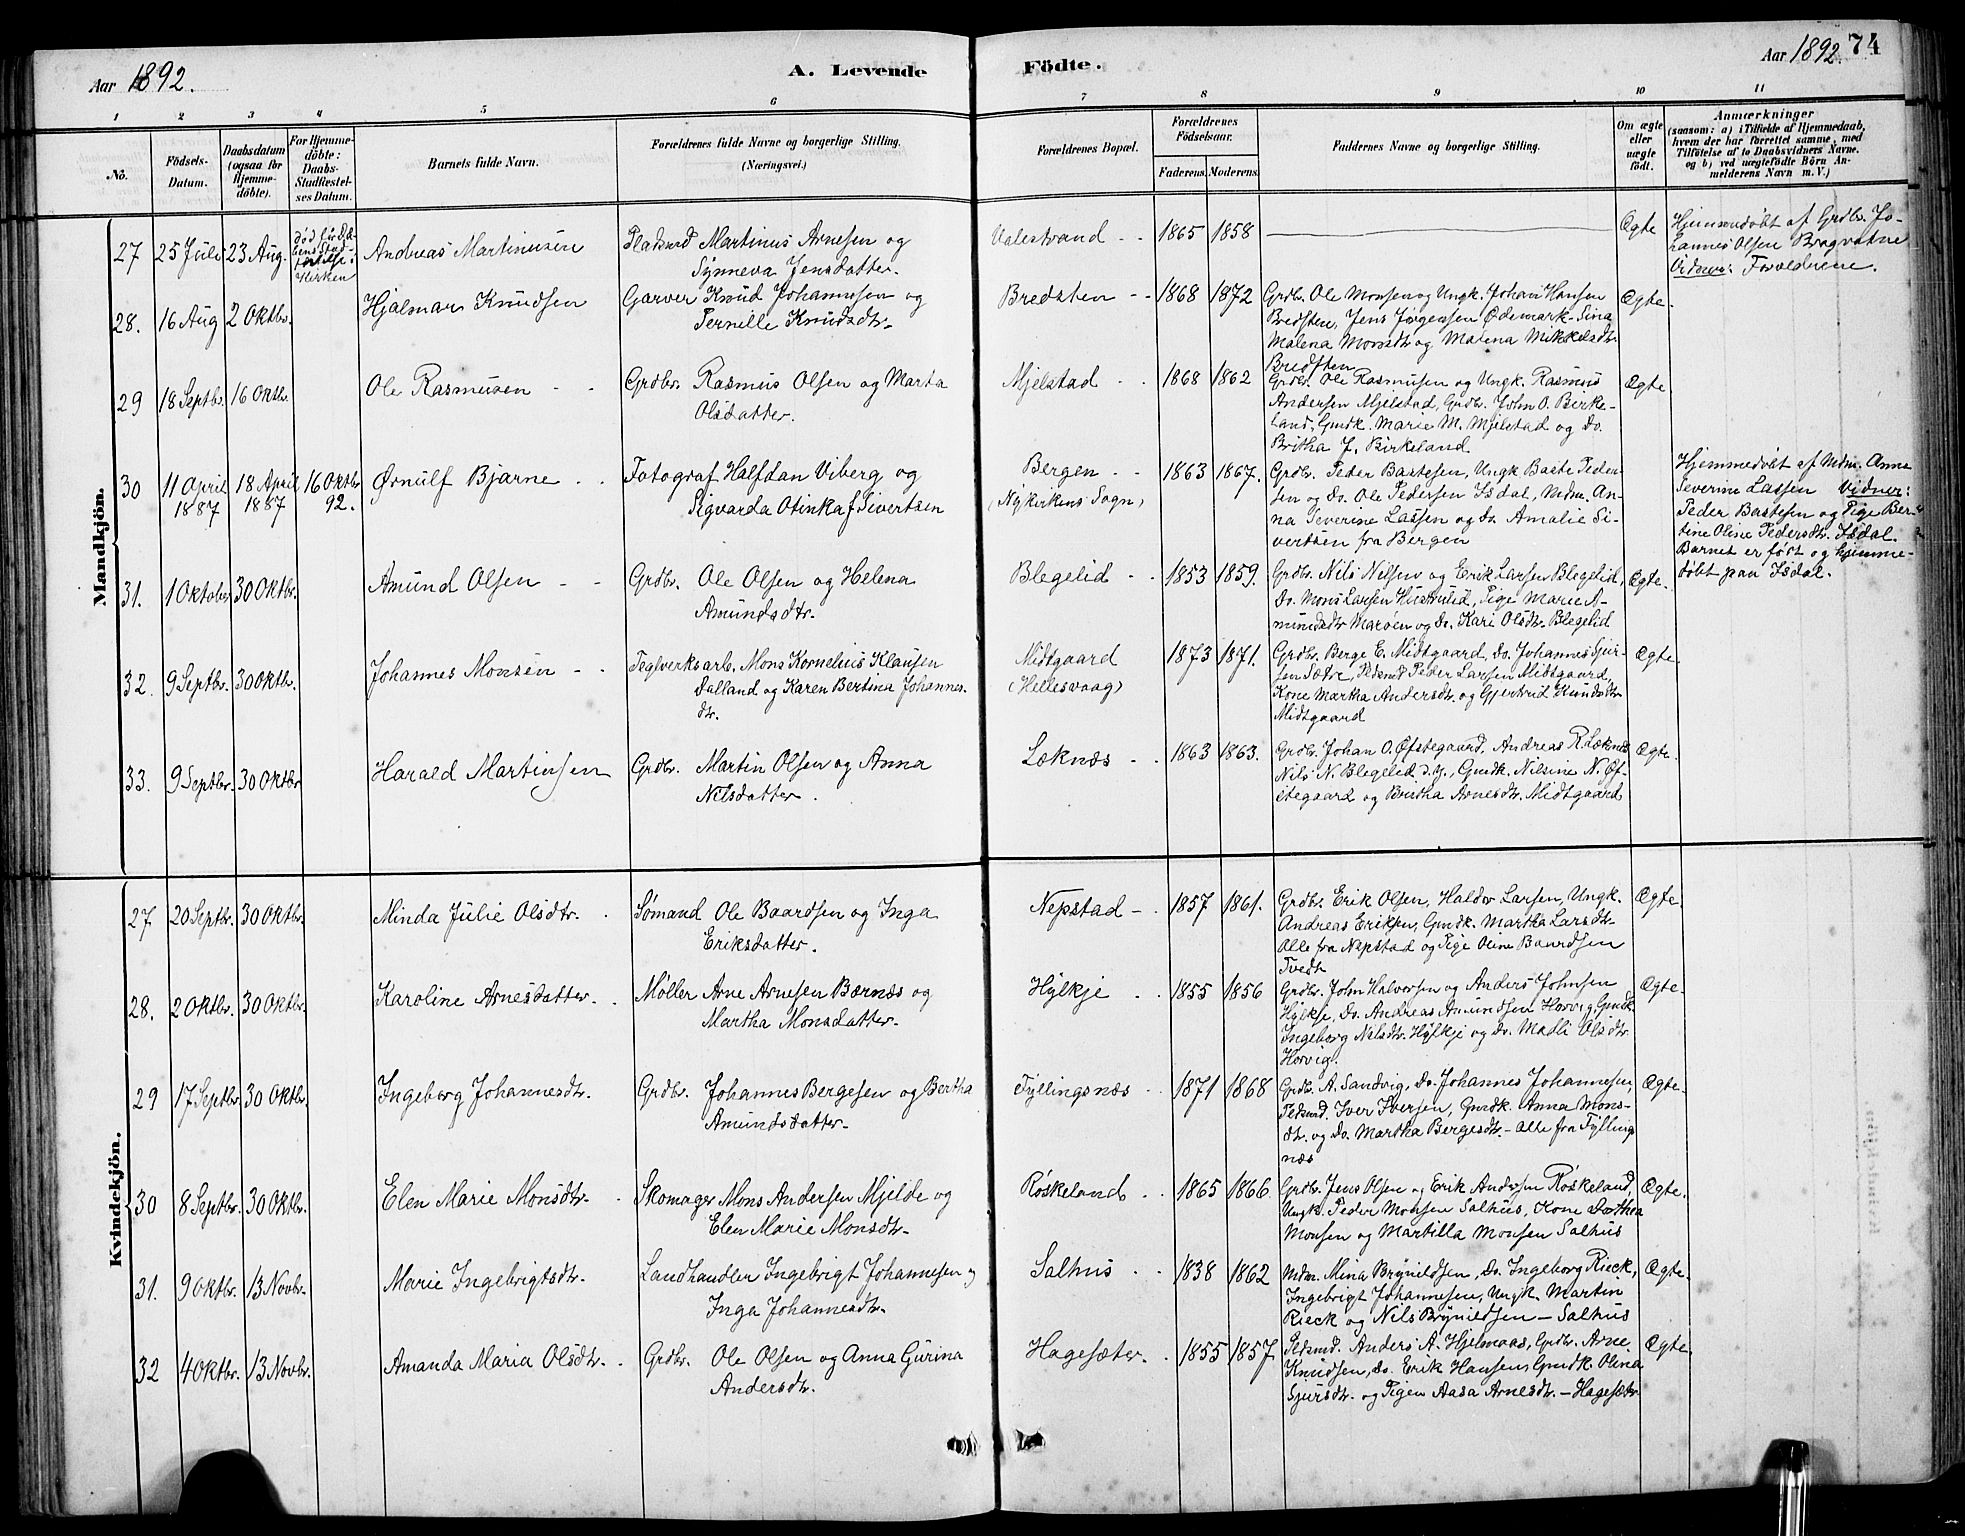 Aar 1892.
A. Levende
Födte.
Aar 1892.
74
1 2 3 4 5 6 7 8 9 10 11
No.
Födsels-
Datum.
Daabsdatum
(ogsaa for
Hjemme-
döbte).
For Hjemme-
döbte:
Daabs-
Stadfæstel-
ses Datum.
Barnets fulde Navn.
Forældrenes fulde Navne og borgerlige Stilling.
(Næringsvei.)
Forældrenes Bopæl.
Forældrenes
Födselsaar.
Faderens.
Moderens.
Faddernes Navne og borgerlige Stilling.
Om ægte
eller
uægte
födt.
Anmærkninger
(saasom: a) i Tilfælde af Hjemmedaab,
hvem der har forrettet samme, med
Tilföielse af to Daabsvidners Navne,
og b) ved uægtefödte Börn An-
melderens Navn m. V.)
Mandkjön.
27 25 Juli 23 Aug. Andreas Martinusen
Martinus Arnesen og
Synneva Jensdatter.
Valestrand 1865 1858 Ægte
Hjemmedøbt af Grdbr. Jo-
hannes Olsen
Vidner: Forældrene.
28. 16 Aug 2 Oktbr. Hjalmar Knudsen
Garver Knud Johannesen og
Pernille Knudsdtr.
Bredsten 1868 1872
Grdbr. Ole Monsen og Ungk. Johan Hansen
Bredsten, Jens Jørgensen Ødemark. Sina
Malena Monsdtr og Malena Mikkelsdtr.
Bredsten
Ægte.
29 18 Septbr. 16 Oktbr. Ole Rasmusen
Grdbr. Rasmus Olsen og Marta
Olsdatter.
Mjelstad 1868 1862
Grdbr. Ole Rasmusen og Ungk. Rasmus
Andersen Mjelstad, Grdbr. John O. Birke-
land, Gmdk. Marie M. Mjelstad og Do.
Britha J. Birkeland
Ægte
30 11 April 1887 18 April 1887 16 Oktbr 92. Ørnulf Bjarne
Fotograf Halfdan Viberg og
Sigvarda Otinka f Sivertsen
Bergen
(Nykirkens Sogn)
1863 1867.
Grdbr. Peder Bastesen, Ungk Baste Peder-
sen og Do. Ole Pedersen Isdal, Mdm. An-
na Severine Lassen og Do. Amalie Si-
vertsen fra Bergen
Hjemmedøbt af Mdm. Anna
Severine Lassen Vidner:
Peder Bastesen og Pige Ber-
tine Oline Pedersdtr. Isdal.
Barnet er født og hjemme-
døbt paa Isdal.
31. 1 Oktober 30 Oktbr. Amund Olsen
Grdbr. Ole Olsen og Helena
Amundsdtr.
Blegelid 1853 1859.
Grdbr. Nils Nilsen og Erik Larsen Blegelid,
Do. Mons Larsen Hustrulid, Pige Marie A-
mundsdtr Marøen og Do. Kari Olsdtr. Blegelid
Ægte.
32. 9 Septbr. 30 Oktbr. Johannes Monsen
Teglverksarb. Mons Kornelius Klausen
Dalland og Karen Bertina Johannes-
dtr.
Midtgaard
(Hellesvaag)
1873 1871.
Grdbr. Berge E. Midtgaard, Do. Johannes Sjur-
sen Sætre, Peder Larsen Midtgaard,
Kone Martha Andersdtr. og Gjertrud Knudsdtr
Midtgaard
Ægte.
33. 9 Septbr. 30 Oktbr Harald Martinsen
Grdbr. Martin Olsen og Anna
Nilsdatter.
Læknæs 1863 1863.
Grdbr. Johan O. Øfstegaard, Andreas R. Læknes
Nils N. Blegelid d.y., Gmdk. Nilsine N. Øf-
stegaard og Britha Arnesdtr. Midtgaard
Ægte.
Kvindekjön.
27 20 Septbr. 30 Oktbr. Minda Julie Olsdtr.
Sømand Ole Baardsen og Inga
Eriksdatter.
Nepstad 1857 1861.
Grdbr. Erik Olsen, Haldor Larsen, Ungk.
Andreas Eriksen, Gmdk. Martha Larsdtr
Alle fra Nepstad og Pige Oline Baardsen
Tvedt
Ægte.
28. 2 Oktbr. 30 Oktbr. Karoline Arnesdatter.
Møller Arne Arnesen Bærnæs og
Martha Monsdatter.
Hylkje 1855 1856
Grdbr. John Halvorsen og Anders Johnsen
Hylkje, Do. Andreas Amundsen Horvig, Gmdk.
Ingeborg Nilsdtr. Hylkje og Do. Madli Olsdtr.
Horvig.
Ægte.
29 17 Septbr 30 Oktbr. Ingeborg Johannesdtr.
Grdbr. Johannes Bergesen og Bertha
Amundsdatter.
Fyllingsnæs 1871 1868
Grdbr. A. Sandvig, Do. Johannes Johannesen,
Iver Iversen, Gmdk. Anna Mons-
dtr. og Do. Martha Bergesdtr. - Alle fra Fyllings-
næs
Ægte.
30 8 Septbr. 30 Oktbr. Elen Marie Monsdtr.
Skomager Mons Andersen Mjelde og
Elen Marie Monsdtr.
Røskeland 1865 1866
Grdbr. Jens Olsen og Erik Andersen Røskeland,
Ungk. Peder Monsen Salhus, Kone Dorthea
Monsen og Martilla Monsen Salhus
Ægte.
31. 9 Oktbr. 13 Novbr. Marie Ingebrigtsdtr.
Landhandler Ingebrigt Johannesen og
Inga Johannesdtr.
Salhus 1838 1862
Mdm. Mina Brynildsen, Do. Ingeborg Rieck,
Ingebrigt Johannesen, Ungk. Martin
Rieck og Nils Brynildsen - Salhus
Ægte.
32 4 Oktbr. 13 Novbr. Amanda Maria Olsdtr.
Grdbr. Ole Olsen og Anna Gurina
Andersdtr.
Hagesæter. 1855 1857.
Anders A. Hjelmaas, Grdbr. Arne
Knudsen, Do. Erik Hansen, Gmdk. Olena
Sjursdtr. og Pigen Aasa Arnesdtr. - Hagesæter
Ægte.